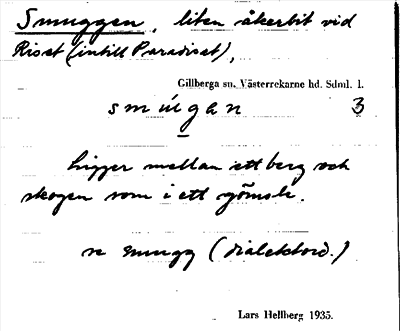 Smuggen, liten åkerbit vid
Riset (intill Paradiset),
Gillberga sn. Västerrekarne hd. Sdml. l.
smúgan 3
ligger mellan ett berg och
skogen som i ett gömsle.
smugg (dialektord.)
Lars Hellberg 1935.